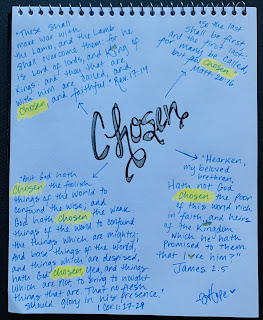 "These shall
make war with
the Lamb, and the Lamb
shall overcome them: for he
is Lord of lords, and King of
Kings: and they that are
with him are called, and
chosen, and faithful." Rev. 17:14
"So the last
shall be first
and the first last:
for many be called,
but few chosen."
Matt. 20:16
Chosen
"But God hath
chosen the foolish
things of the world to
confound the wise; and
God hath chosen the weak
things of the world to confound
the things which are mighty;
And base things of the world,
and things which are despised,
hath God chosen, yea, and things
which are not, to bring to nought
things that are: That no flesh
should glory in his presence."
1 Cor. 1:27-29
"Hearken,
my beloved
brethren,
Hath not God
chosen the poor
of this world rich
in faith, and heirs
of the Kingdom
which he hath
promised to them
that love him?"
James 2:5
Hope